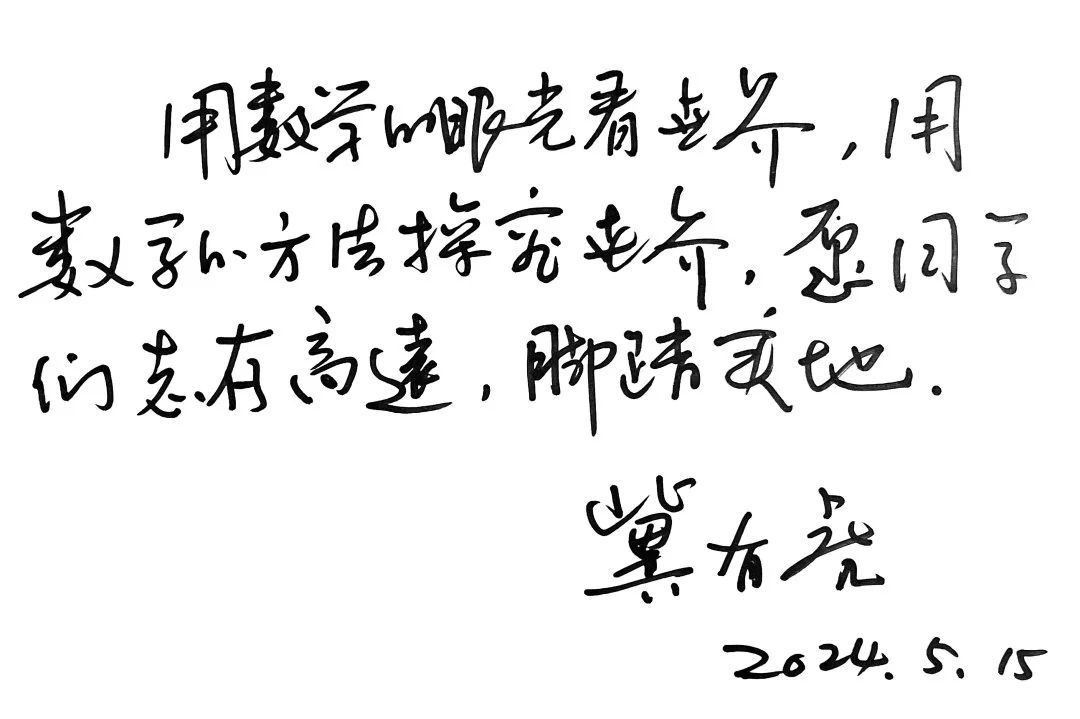 用数学的眼光看世界,用
数学的方法探究世界,愿同学
们志在高远,脚踏实地.
冀有虎
2024.5.15